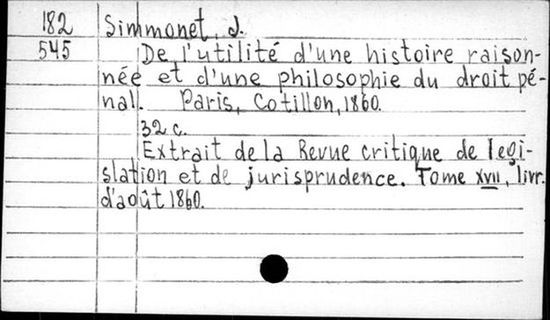 182 Simmonet, J.
545 De l'utilité d'une histoire raison-
née et d'une philosophie du droit pé-
nal. Paris, Cotillon, 1860.
32 c.
Extrait de la Revue critique de legi-
slation et de jurisprudence. Tome XVII, livr.
d'août 1860.